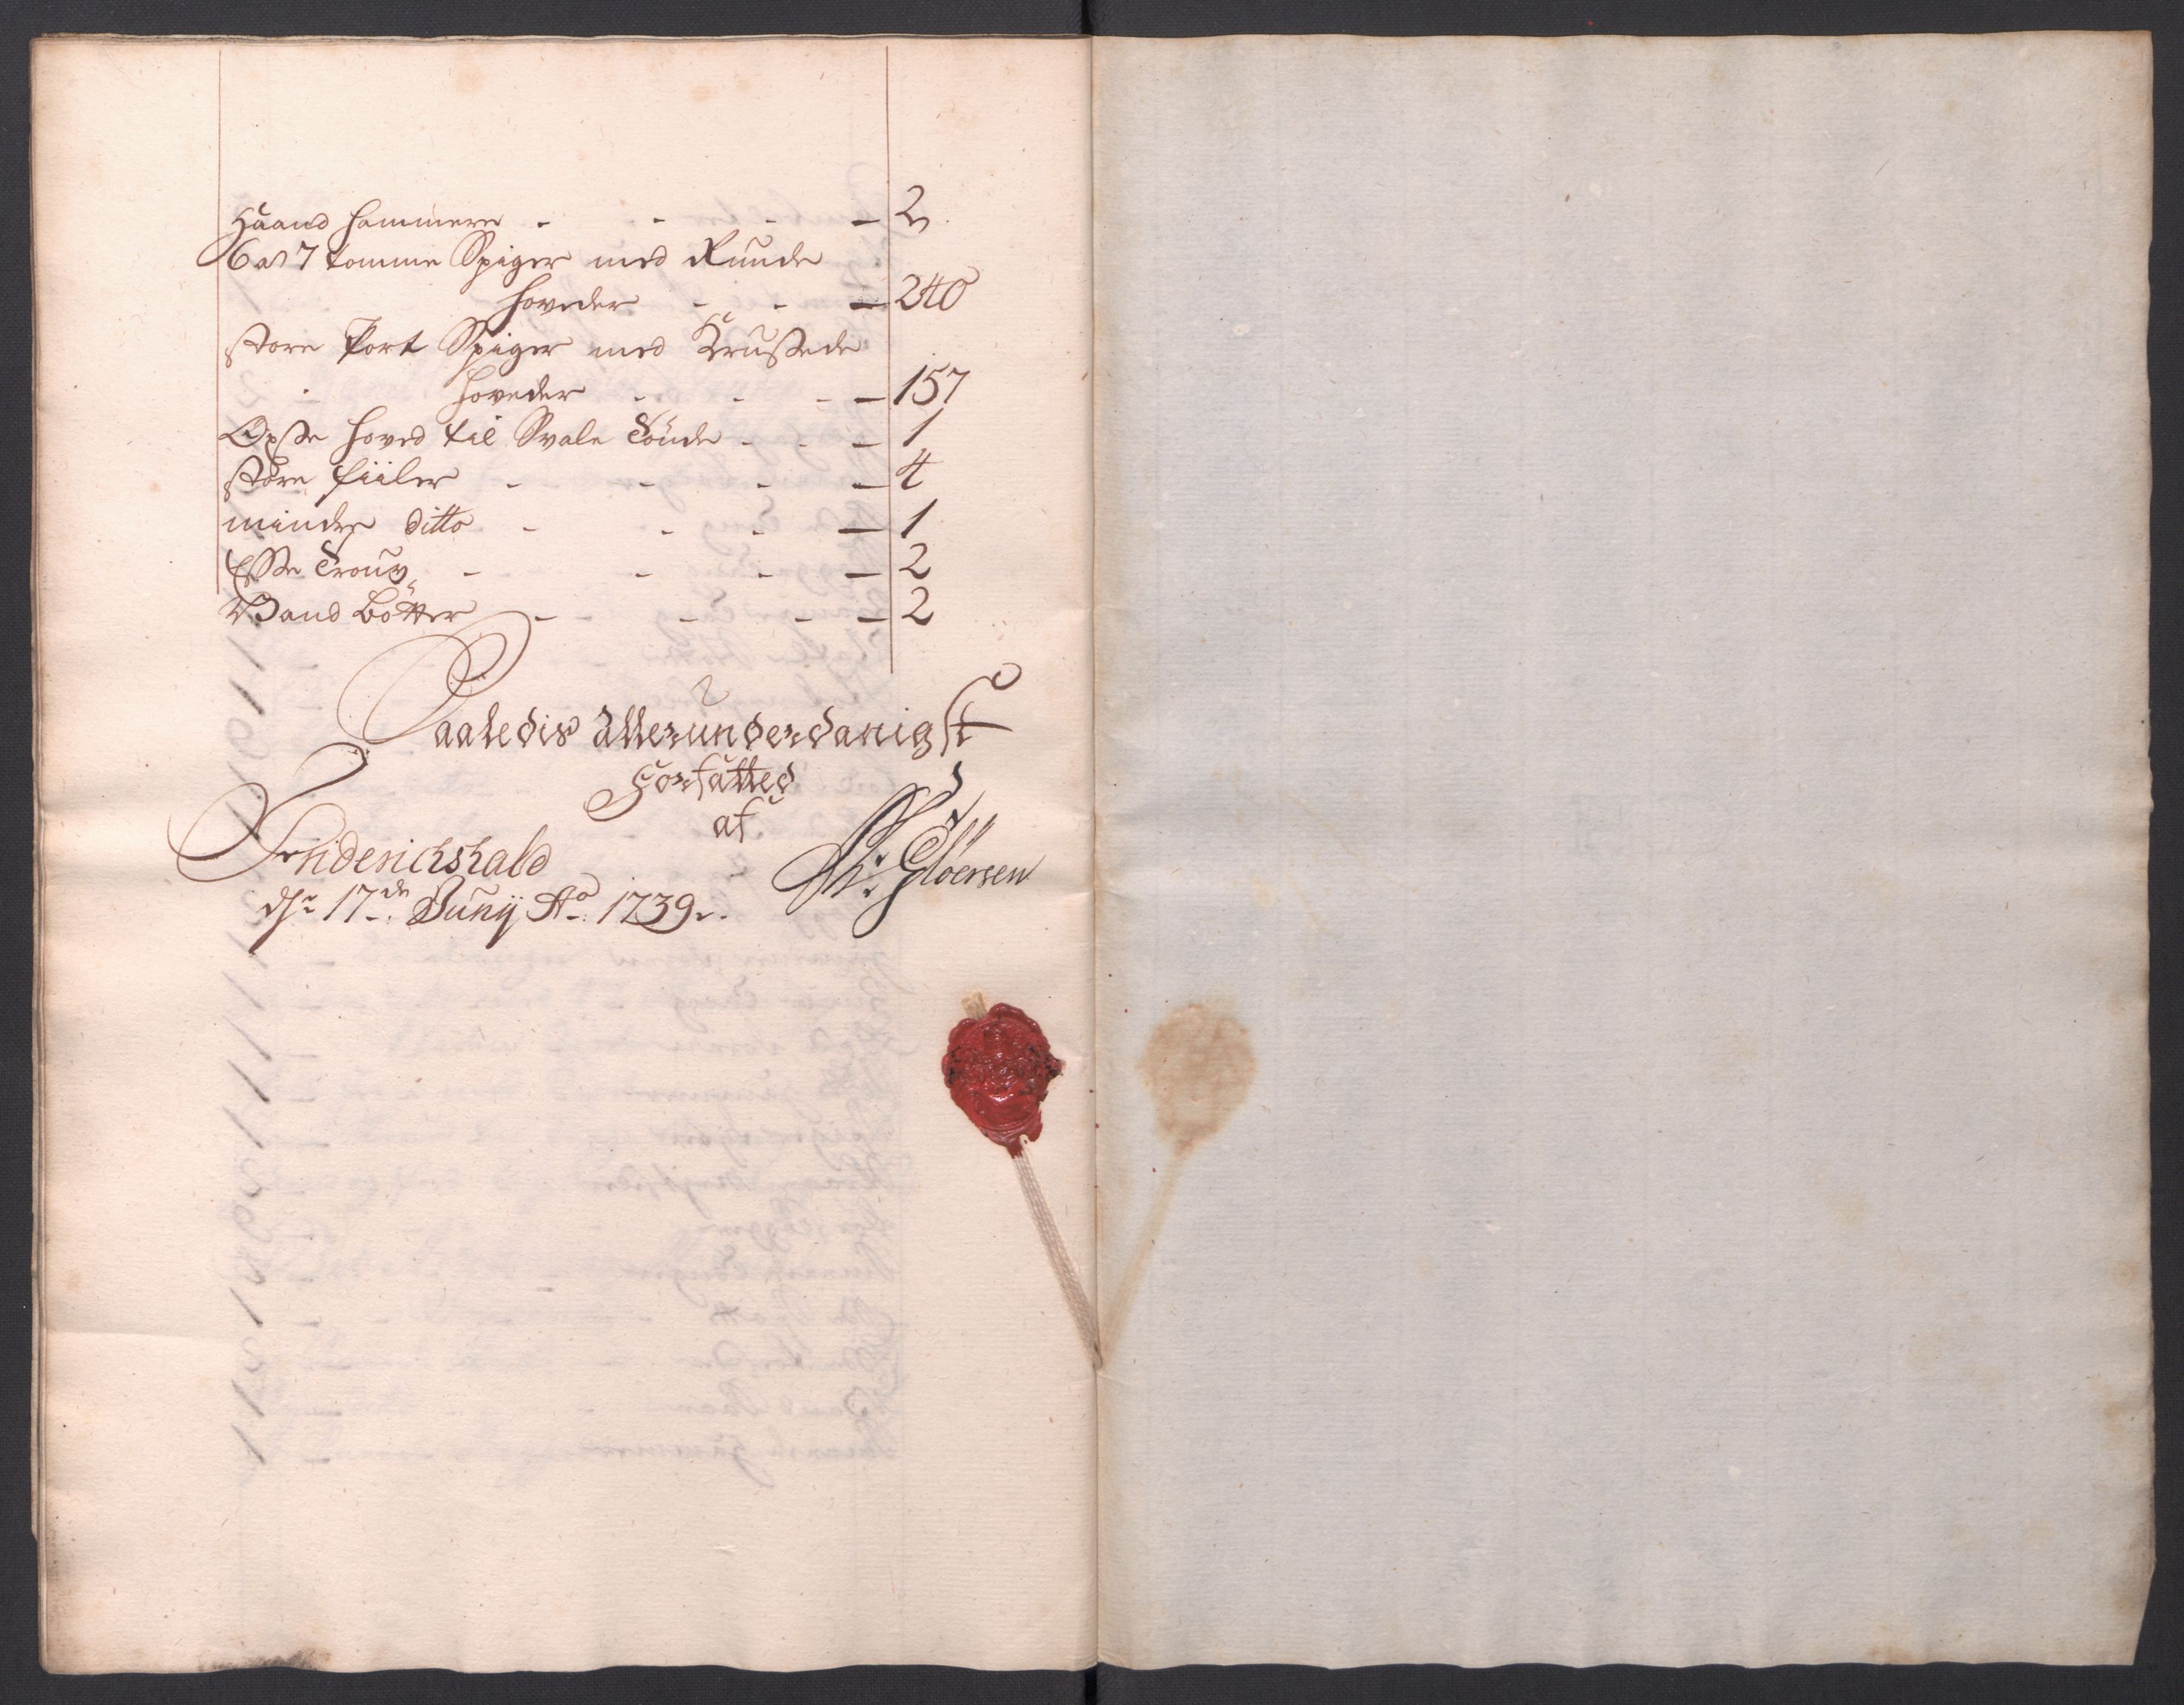 Haand hammere - - - - 2
6 a 7 tomme Spiger med Runde
hoveder - - - 240
store Port Spiger med Krussede
hoveder - - - - 157
hoved til Svale Tønde - - - 1
store fiiler - - - - 4
mindre ditto - - - - 1
Esse - - - - 2
Vand bøtter - - - - 2
Saaledis allerunderdanigst
Forfatted
af
Friderichshald
d 17de Junÿ Ao 1739.
Gløersen